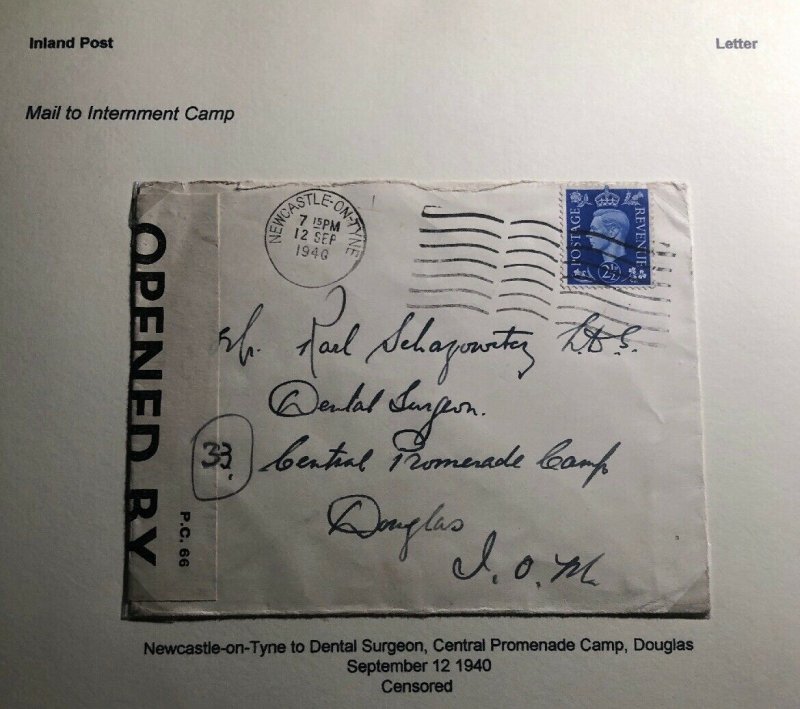 Inland Post
Letter
Mail to Internment Camp
NEWCASTLE-ON-TYNE
7 15PM
12 SEP
1940
POSTAGE
REVENUE
2½
OPENED BY
P.C. 66
33.
Karl Schagowitz L.D.S.
Dental Surgeon.
Central Promenade Camp
Douglas
I. O. M.
Newcastle-on-Tyne to Dental Surgeon, Central Promenade Camp, Douglas
September 12 1940
Censored